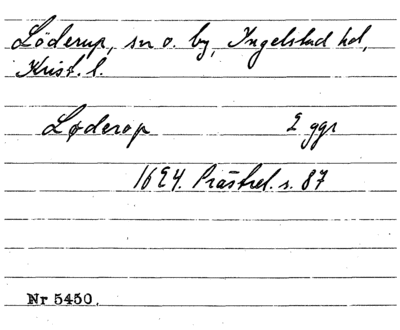 Löderup, sn o. by, Ingelstad hd,
Krist. l.
Løderop 2 ggr
1624. Prästrel. s. 87
Nr 5450.